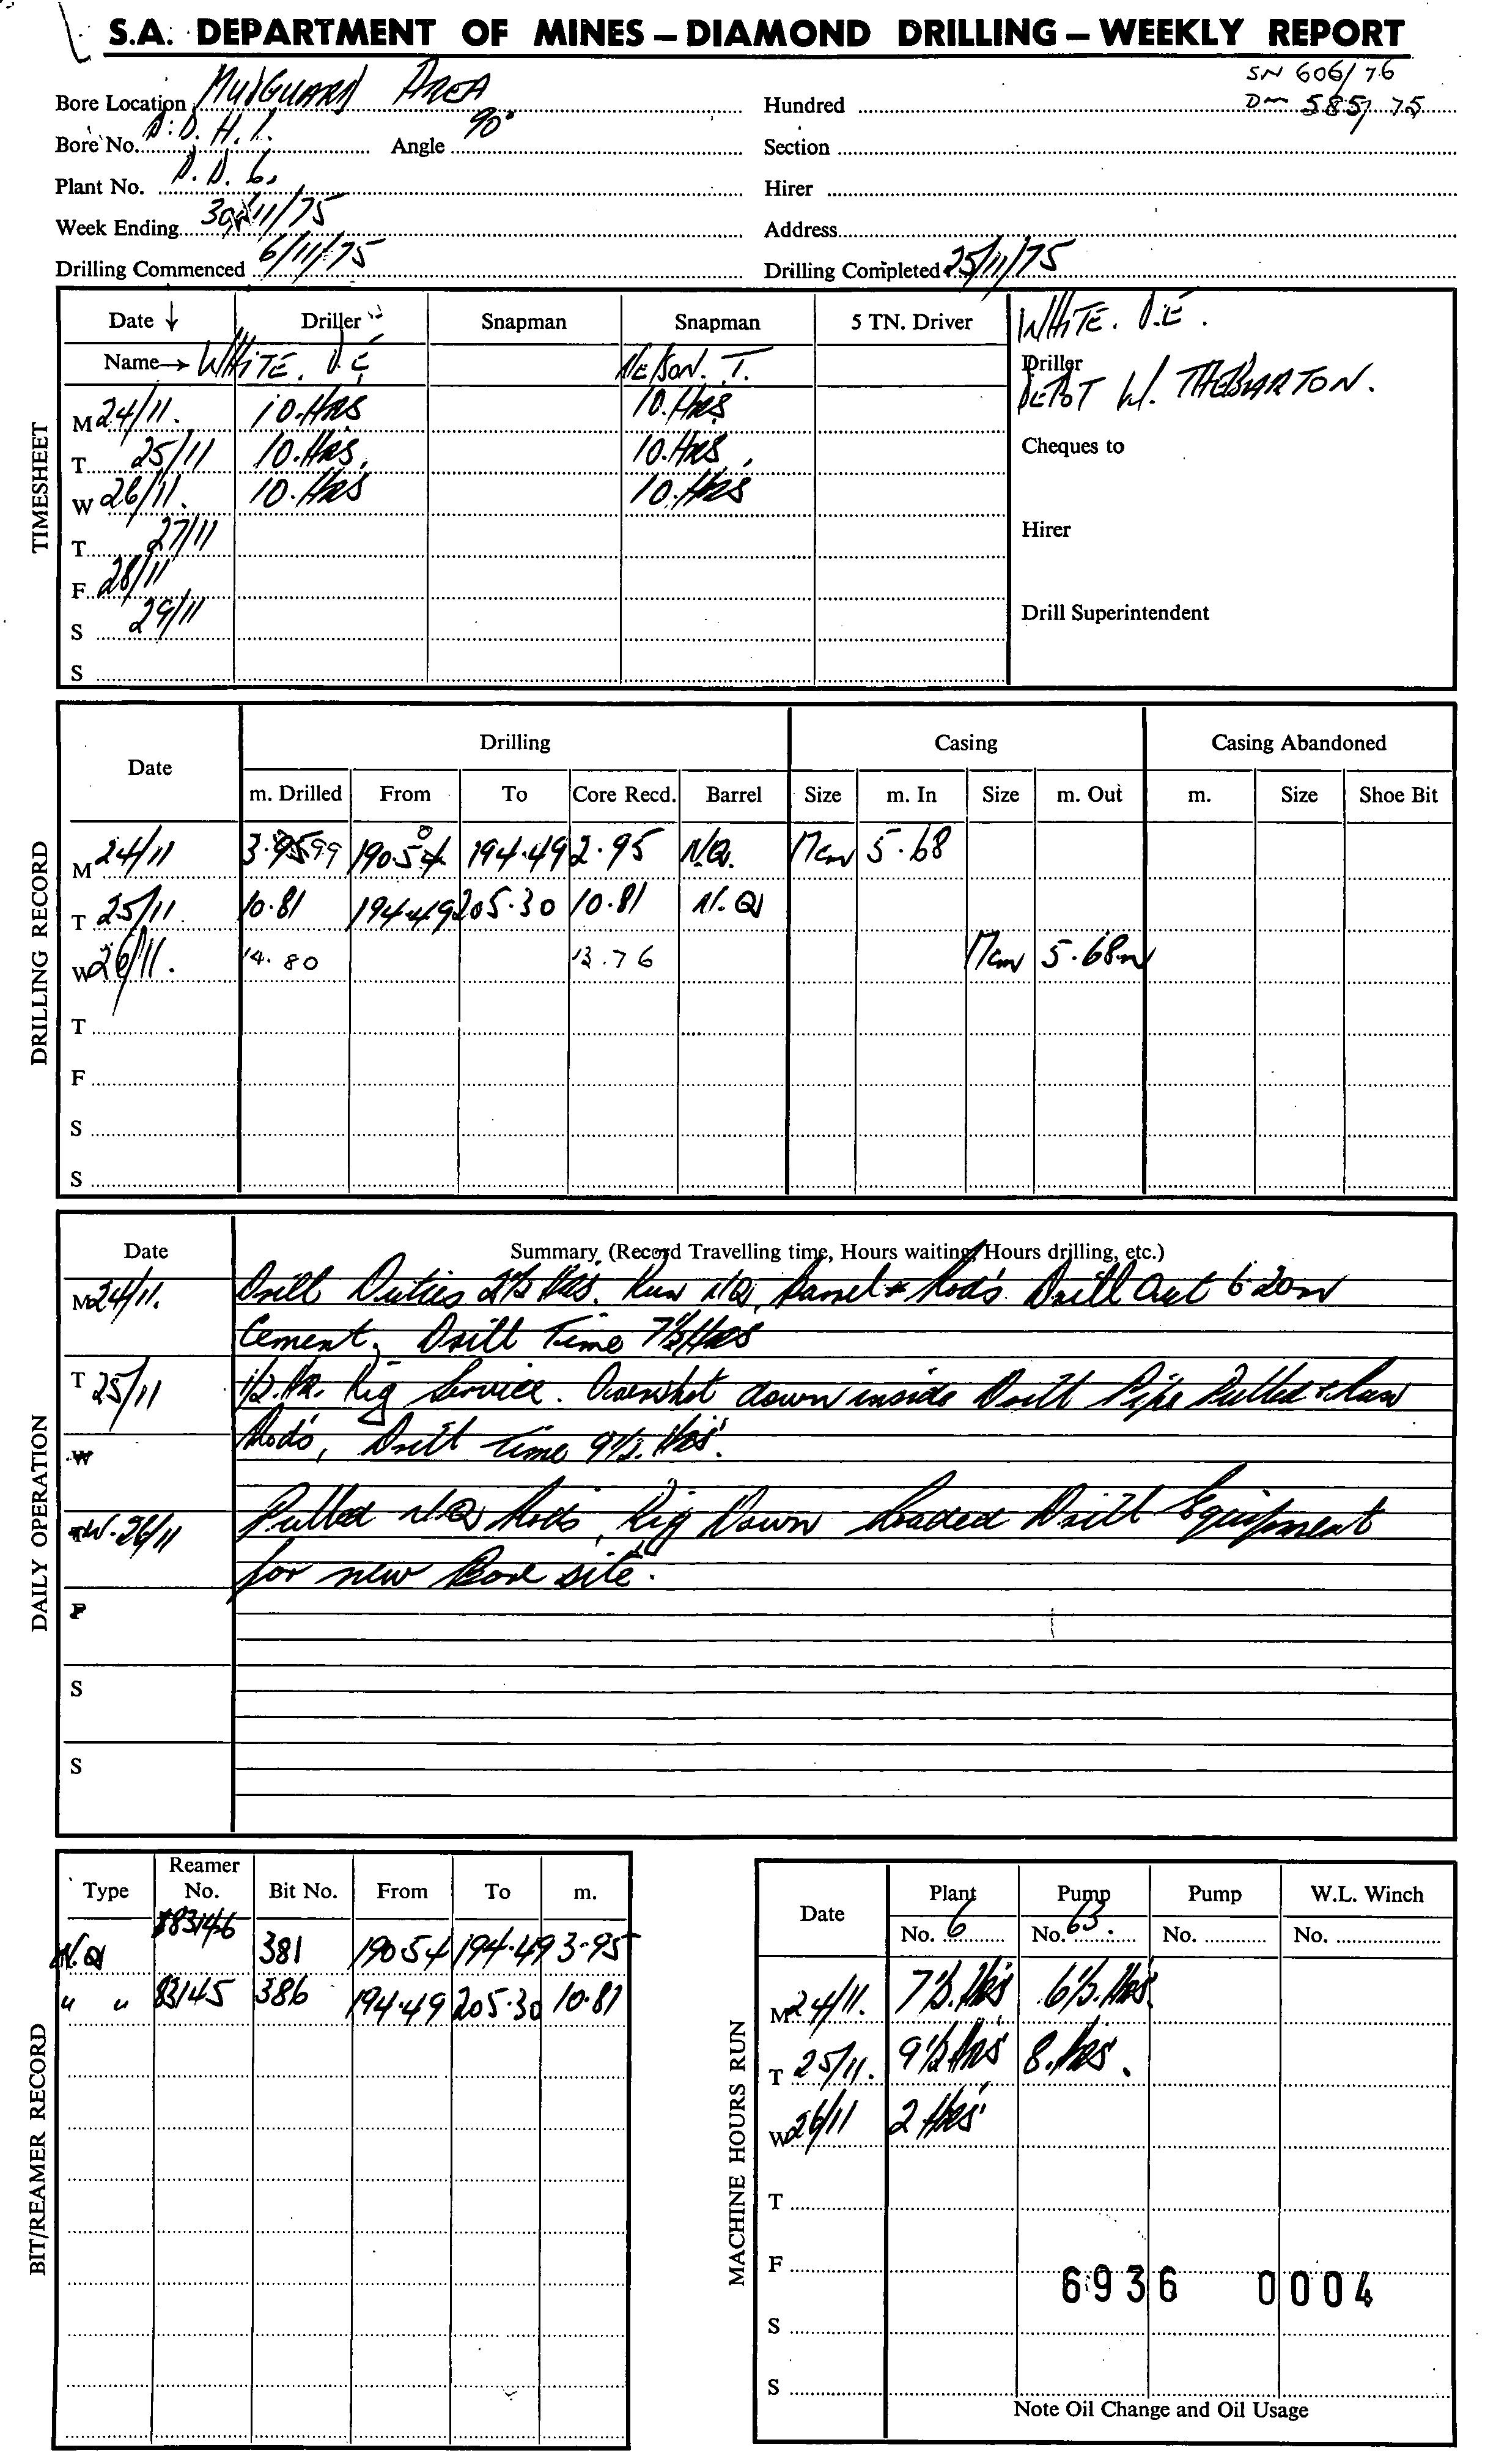 S.A. DEPARTMENT OF MINES – DIAMOND DRILLING – WEEKLY REPORT
SN 606/76
Bore Location MUDGUARD AREA Hundred DM 585/75
Bore No. D.D.H.1. Angle 90° Section
Plant No. D.D.6. Hirer
Week Ending 30/11/75 Address
Drilling Commenced 6/11/75 Drilling Completed 25/11/75
TIMESHEET
Date ↓ Driller Snapman Snapman 5 TN. Driver WHITE. D.E.
Name → WHITE. D.E NELSON. T. Driller
DEPOT W. THEBARTON.
M 24/11. 10.HRS 10.HRS
T 25/11 10.HRS. 10.HRS. Cheques to
W 26/11. 10.HRS 10.HRS
T 27/11 Hirer
F 28/11
S 29/11 Drill Superintendent
S
DRILLING RECORD
Date Drilling Casing Casing Abandoned
m. Drilled From To Core Recd. Barrel Size m. In Size m. Out m. Size Shoe Bit
M 24/11 3.99 190.50 194.49 2.95 N.Q. 17cm 5.68
T 25/11 10.81 194.49 205.30 10.81 N.Q
W 26/11. 14.80 13.76 17cm 5.68m
T
F
S
S
DAILY OPERATION
Date Summary (Record Travelling time, Hours waiting, Hours drilling, etc.)
M 24/11. Drill Duties 2½ Hrs. Run N.Q. Barrel & Rods Drill Out 6.20m
Cement. Drill Time 7½ Hrs
T 25/11 1/2.Hr. Rig Service. Overshot down inside Drill Pipe Pulled & Run
Rods, Drill Time 9½. Hrs.
W
W. 26/11 Pulled N.Q Rods, Rig Down Loaded Drill Equipment
for new Bore site.
F
S
S
BIT/REAMER RECORD
Type Reamer No. Bit No. From To m.
N.Q 83146 381 190.54 194.49 3.95
" " 83145 386 194.49 205.30 10.81
MACHINE HOURS RUN
Date Plant Pump Pump W.L. Winch
No. 6 No. 63. No. No.
M 24/11. 7½.Hrs 6½.Hrs.
T 25/11. 9½ Hrs 8.Hrs.
W 26/11 2 Hrs
T
F
6936 0004
S
S
Note Oil Change and Oil Usage